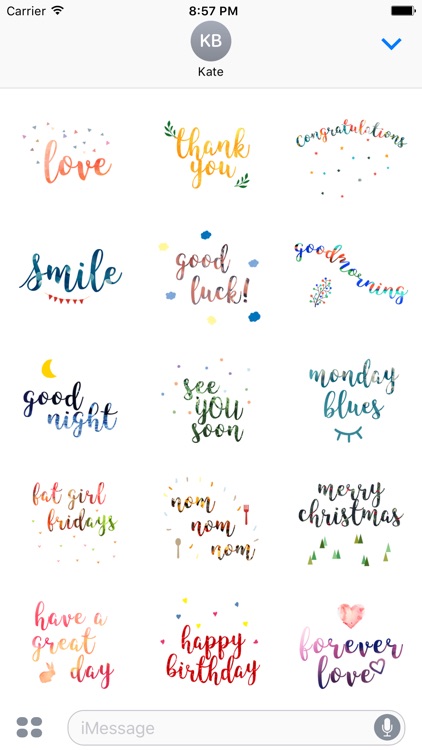 Carrier
8:57 PM
KB
Kate
love
thank
you
congratulations
smile
good
luck!
goodmorning
good
night
see
you
soon
monday
blues
fat girl
fridays
nom
nom
nom
merry
christmas
have a
great
day
happy
birthday
forever
love
iMessage